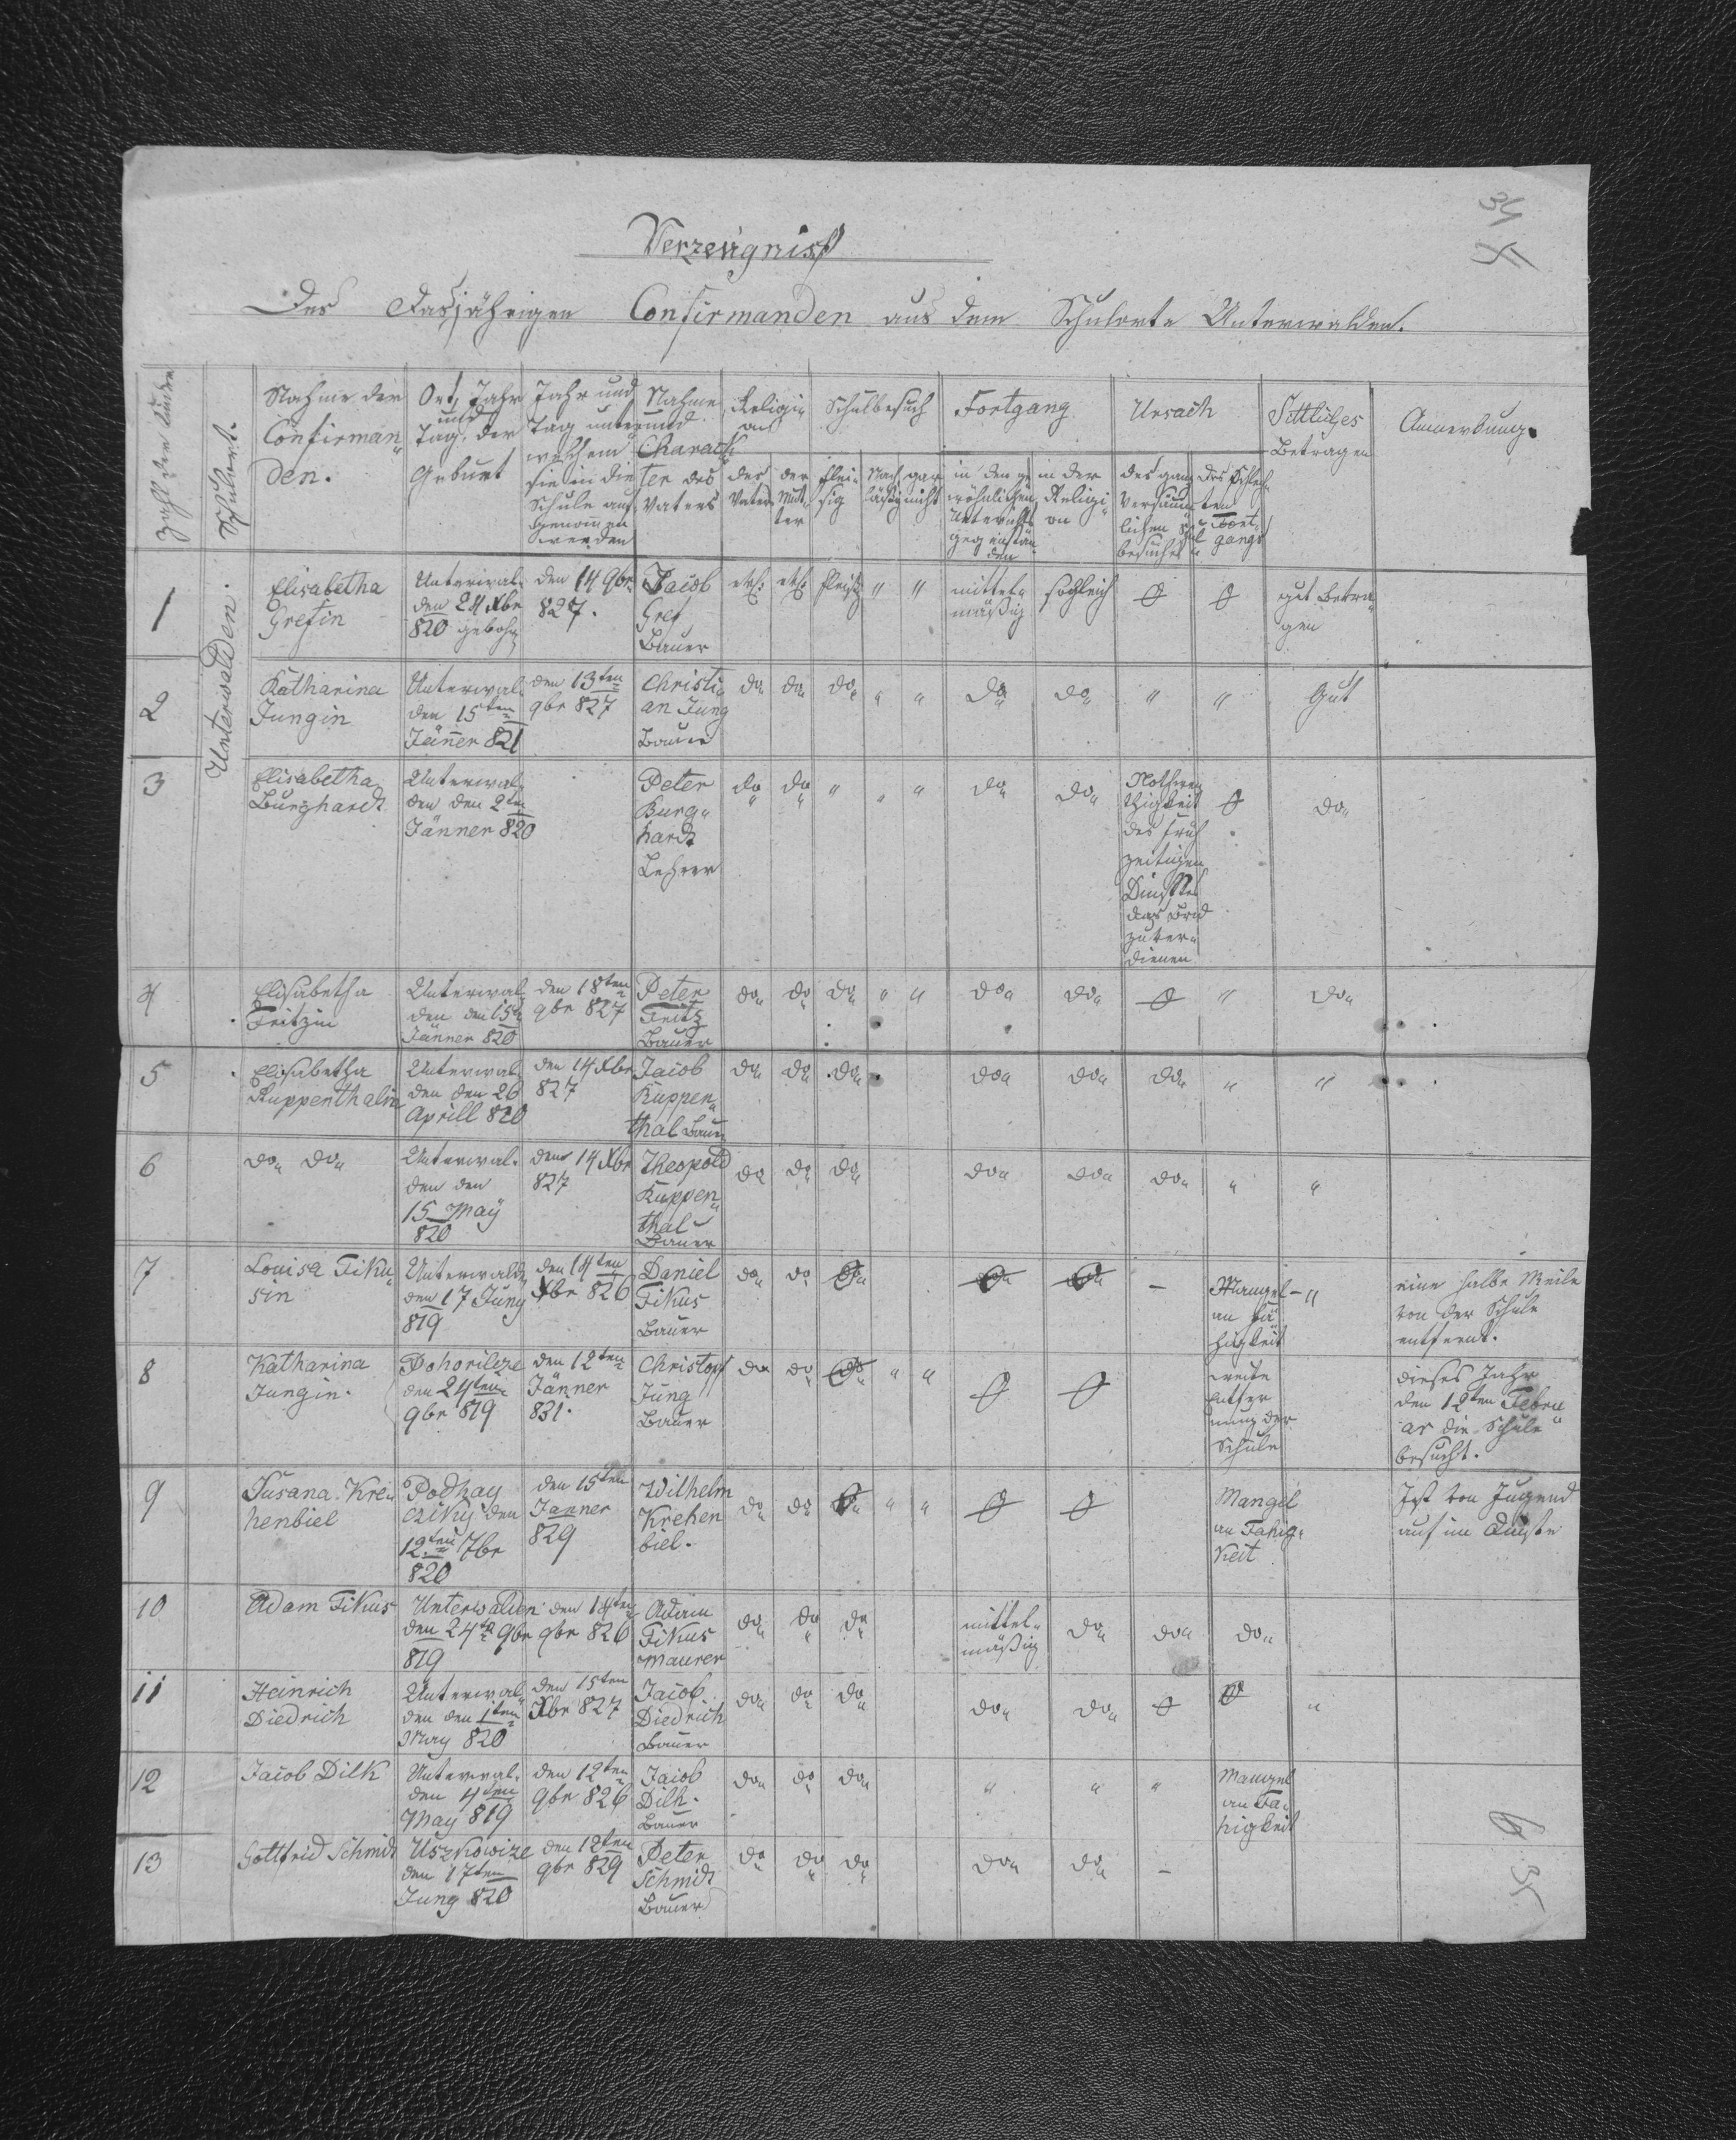 34
Verzeugniss
Des dasjährigen Confirmanden aus dem Schulorte Unterwalden.
Zahl der Kinder
Schulort.
Nahme der Confirman„den.
Ort, Jahr und Tag, der Geburt
Jahr und Tag unter welchem sie in die Schule aufgenommen werden
Nahme und Charackter des Vaters
Religion
des Vaters
der Mutter
Schulbesuch
fleissig
Nachläßig
gar nicht
Fortgang
in den gewöhnlichen Unterrichts gegenständen
in der Religion
Ursach
des ganz versäumlichen Schulbesuches
des Schlechten Fortgangs
Sittliches Betragen
Anmerkung.
Unterwalden.
1
Elisabetha Grefin
Unterwalden 24 Xbr 820 gebohrn
den 14 9br 827.
Jacob Gref Bauer
fleißig " "
mittelmäßig
sogleich
gut betragen
2
Katharina Jungin
Unterwalden 15ten Jänner 821
den 13ten 9br 827
Christian Jung Bauer
do do do " " do do " " Gut
3
Elisabetha Burghardt
Unterwalden den 2ten Jänner 820
Peter Burghardt Lehrer
do do " " " do do
Nothwendigkeit des fruhzeitigen Dinstes das Brod zu verdienen
do
4
Elisabetha Fritzin
Unterwalden den 15ten Jänner 820
den 18ten 9br 827
Peter Fritz Bauer
do do do " " do do " do
5
Elisabetha Kuppenthalin
Unterwalden den 26 Aprill 820
den 14 Xbr 827
Jacob Kuppenthal Bauer
do do do do do do " "
6
do do
Unterwalden den 15 May 820
den 14 Xbr 827
Theopold Kuppenthal Bauer
do do do do do do " "
7
Louisa Fikusin
Unterwalden den 17 Juny 819
den 14ten Xbr 826
Daniel Fikus Bauer
do do do do do —
Mangel an Fähigkeit
"
eine halbe Meile von der Schule entfernt.
8
Katharina Jungin.
Dohorilcze den 24ten 9br 819
den 12ten Jänner 831.
Christoph Jung Bauer
do do do " "
weite Entfernung der Schule
dieses Jahr den 12ten Februar die Schule besucht.
9
Susana Krehenbiel
Podhaycziky den 12ten 7br 820
den 15ten Janner 829
Wilhelm Krehenbiel.
do do do " "
Mangel an Fahigkeit
Ist von Jugend auf im Dinste
10
Adam Fikus
Unterwalden den 24ten 9br 819
den 14ten 9br 826
Adam Fikus Maurer
do do do
mittelmäßig
do do do
11
Heinrich Diedrich
Unterwalden den 1ten May 820
den 15ten Xbr 827
Jacob Diedrich Bauer
do do do do do "
12
Jacob Dilk
Unterwalden 4ten May 819
den 12ten 9br 826
Jacob Dilk. Bauer
do do do " " "
Mangel an Fahigkeit
13
Gottfrid Schmidt
Uszkowize den 17ten Juny 820
den 12ten 9br 829
Peter Schmidt Bauer
do do do do do —
35